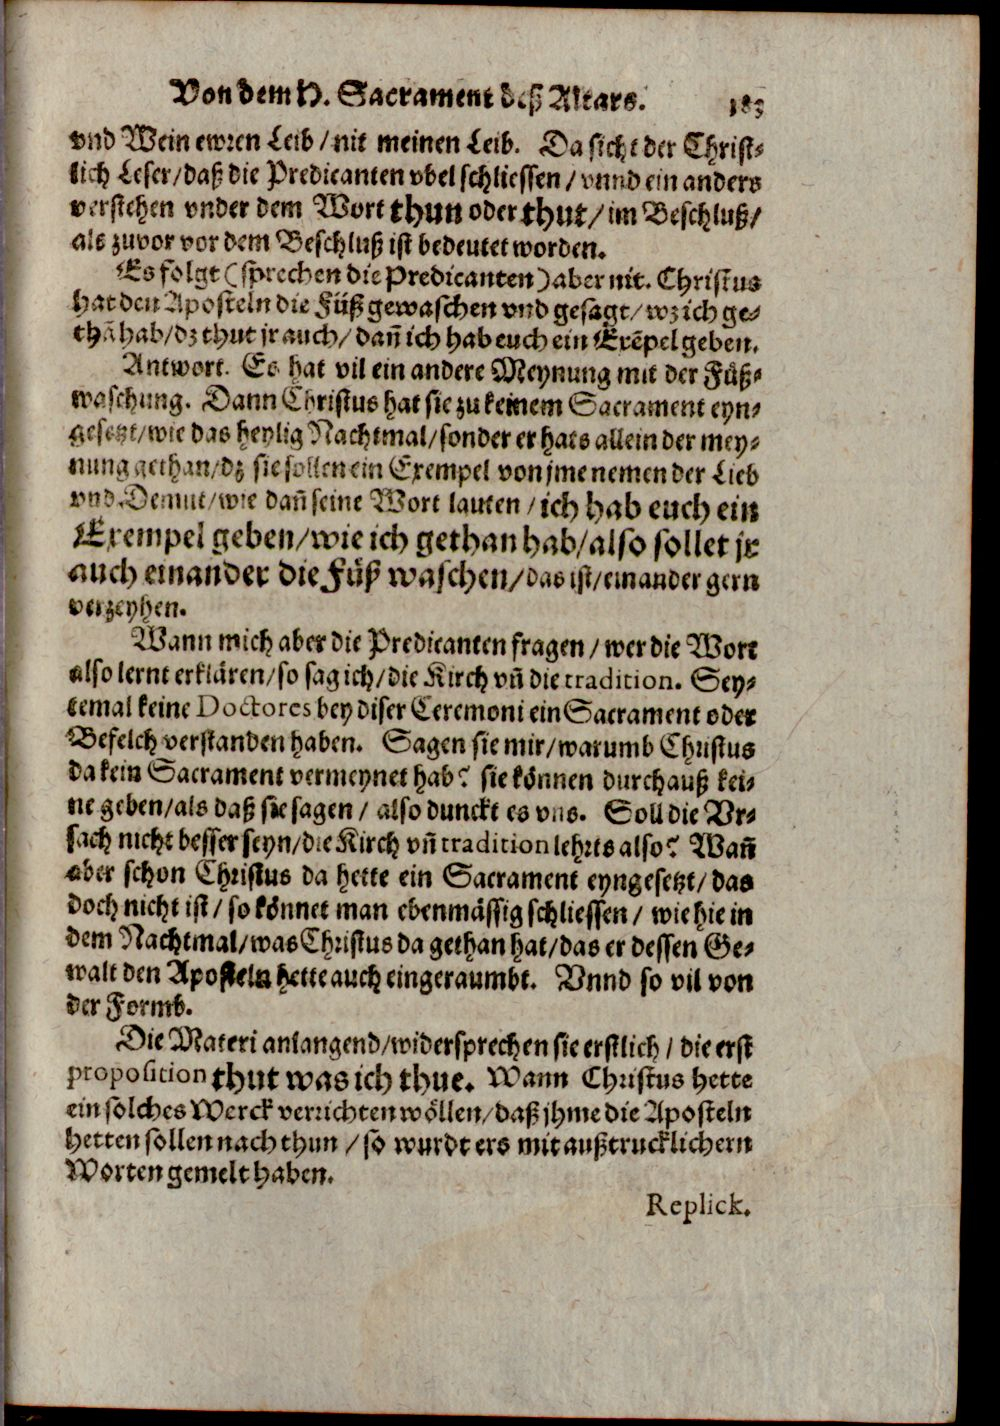 Von dem H. Sacrament deß Altars. 183
vnd Wein ewren Leib / nit meinen Leib. Da sicht der Christ-
lich Leser/daß die Predicanten vbel schliessen / vnnd ein anders
verstehen vnder dem Wort thun oder thut/ im Beschluß/
als zuvor vor dem Beschluß ist bedeutet worden.
Es folgt (sprechen die Predicanten) aber nit. Christus
hat den Aposteln die Füß gewaschen vnd gesagt/ wz ich ge-
thã hab/dz thut jr auch/ dañ ich hab euch ein Exẽpel geben.
Antwort. Es hat vil ein andere Meynung mit der Füß-
waschung. Dann Christus hat sie zu keinem Sacrament eyn-
gesetzt/wie das heylig Nachtmal/sonder er hats allein der mey-
nung gethan/dz sie sollen ein Exempel von jme nemen der Lieb
vnd Demut/wie dañ seine Wort lauten / ich hab euch ein
Exempel geben/wie ich gethan hab/also sollet jr
auch einander die Füß waschen/das ist/einander gern
verzeyhen.
Wann mich aber die Predicanten fragen / wer die Wort
also lernt erklären/so sag ich/die Kirch vñ die tradition. Sey-
temal keine Doctores bey diser Ceremoni ein Sacrament oder
Befelch verstanden haben. Sagen sie mir/warumb Christus
da kein Sacrament vermeynet hab? sie können durchauß kei-
ne geben/als daß sie sagen / also dunckt es vns. Soll die Vr-
sach nicht besser seyn/die Kirch vñ tradition lehrts also? Wañ
aber schon Christus da hette ein Sacrament eyngesetzt/ das
doch nicht ist / so könnet man ebenmässig schliessen / wie hie in
dem Nachtmal/was Christus da gethan hat/das er dessen Ge-
walt den Aposteln hette auch eingeraumbt. Vnnd so vil von
der Formb.
Die Materi anlangend/widersprechen sie erstlich / die erst
proposition thut was ich thue. Wann Christus hette
ein solches Werck verrichten wöllen/daß jhme die Aposteln
hetten sollen nach thun / so wurdt ers mit außtrucklichern
Worten gemelt haben.
Replick.